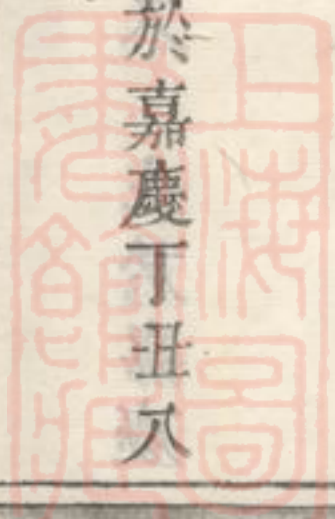 於嘉慶丁丑八
上海圖
書館藏